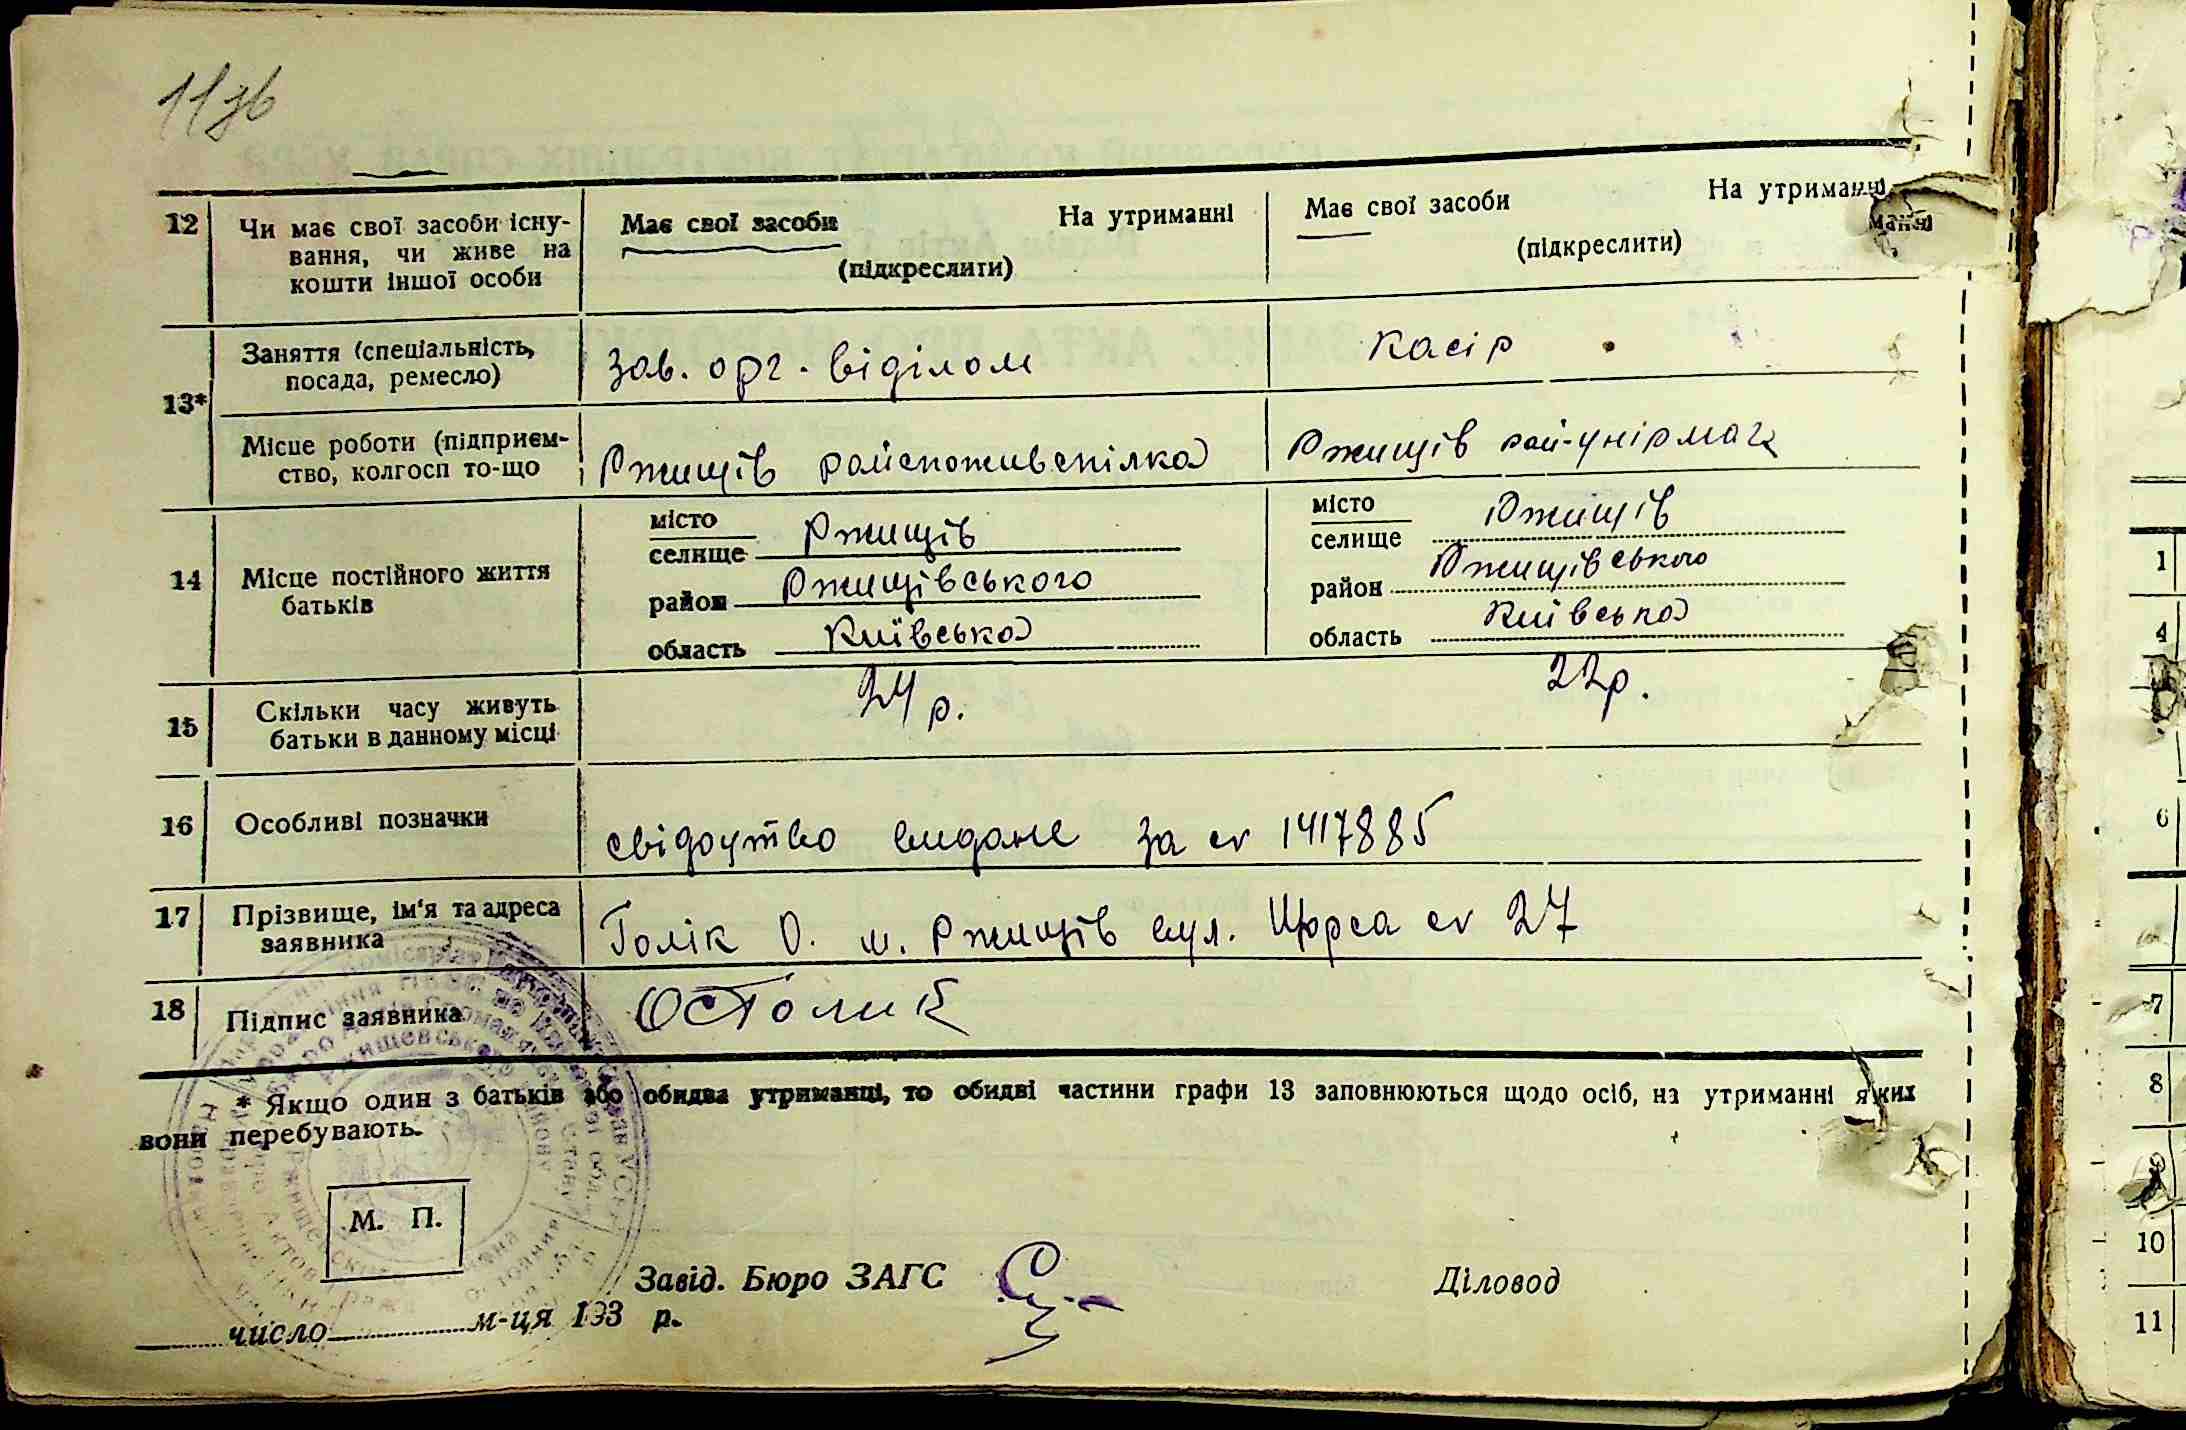 11зв
12 Чи має свої засоби існу- Має свої засоби На утриманні Має свої засоби На утриманні
вання, чи живе на (підкреслити) (підкреслити)
кошти іншої особи
13* Заняття (спеціальність, зав. орг. віділом касір
посада, ремесло)
Місце роботи (підприєм- Ржищів райспоживспілка Ржищів рай-унірмаг
ство, колгосп то-що
14 Місце постійного життя батьків
місто Ржищів місто Ржищів
селище селище
район Ржищівського район Ржищівського
область Київська область Київська
15 Скільки часу живуть 24 р. 22 р.
батьки в данному місці
16 Особливі позначки свідоцтво видане за № 1417885
17 Прізвище, ім'я та адреса Голік О. м. Ржищів вул. Щорса № 27
заявника
18 Підпис заявника
* Якщо один з батьків або обидва утриманці, то обидві частини графи 13 заповнюються щодо осіб, на утриманні яких
вони перебувають.
М. П.
Завід. Бюро ЗАГС Діловод
число м-ця 193 р.
1
4
6
7
8
9
10
11